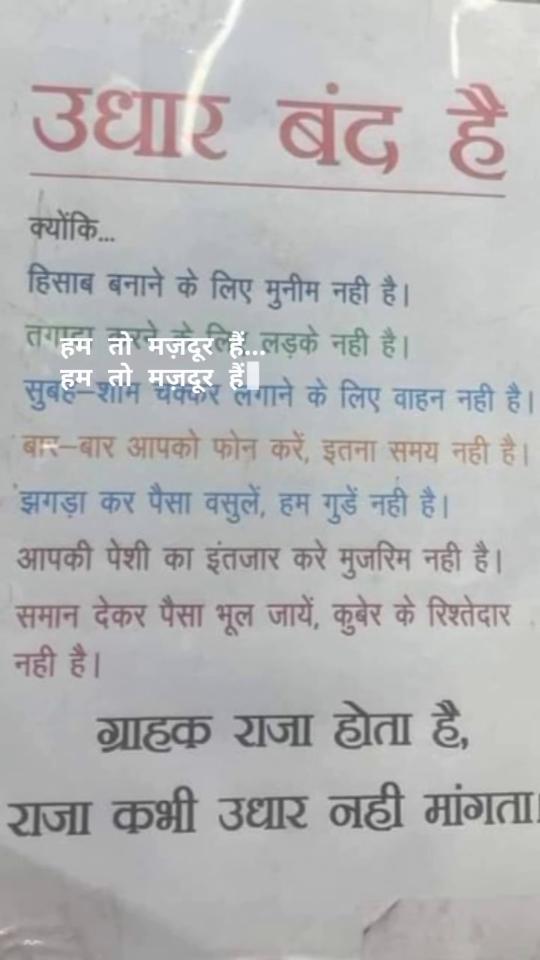 उधार बंद है
क्योंकि...
हिसाब बनाने के लिए मुनीम नही है।
लड़के नही है।
हम तो मज़दूर हैं...
हम तो मज़दूर हैं
सुबह–शाम चक्कर लगाने के लिए वाहन नही है।
बार–बार आपको फोन करें, इतना समय नही है।
झगड़ा कर पैसा वसुलें, हम गुडें नही है।
आपकी पेशी का इंतजार करे मुजरिम नही है।
समान देकर पैसा भूल जायें, कुबेर के रिश्तेदार
नही है।
ग्राहक राजा होता है,
राजा कभी उधार नही मांगता।